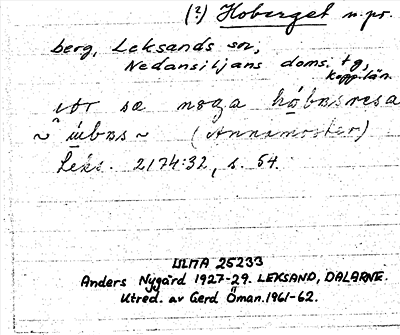 (?) Hoberget n. pr.
berg, Leksands sn,
Nedansiljans doms. tg,
Kopp. län.
sæ noga
~ ~ (Annamoster)
Leks. 2174:32, s. 54.
ULMA 25233
Anders Nygård 1927-29. LEKSAND, DALARNE.
Utred. av Gerd Öman. 1961-62.